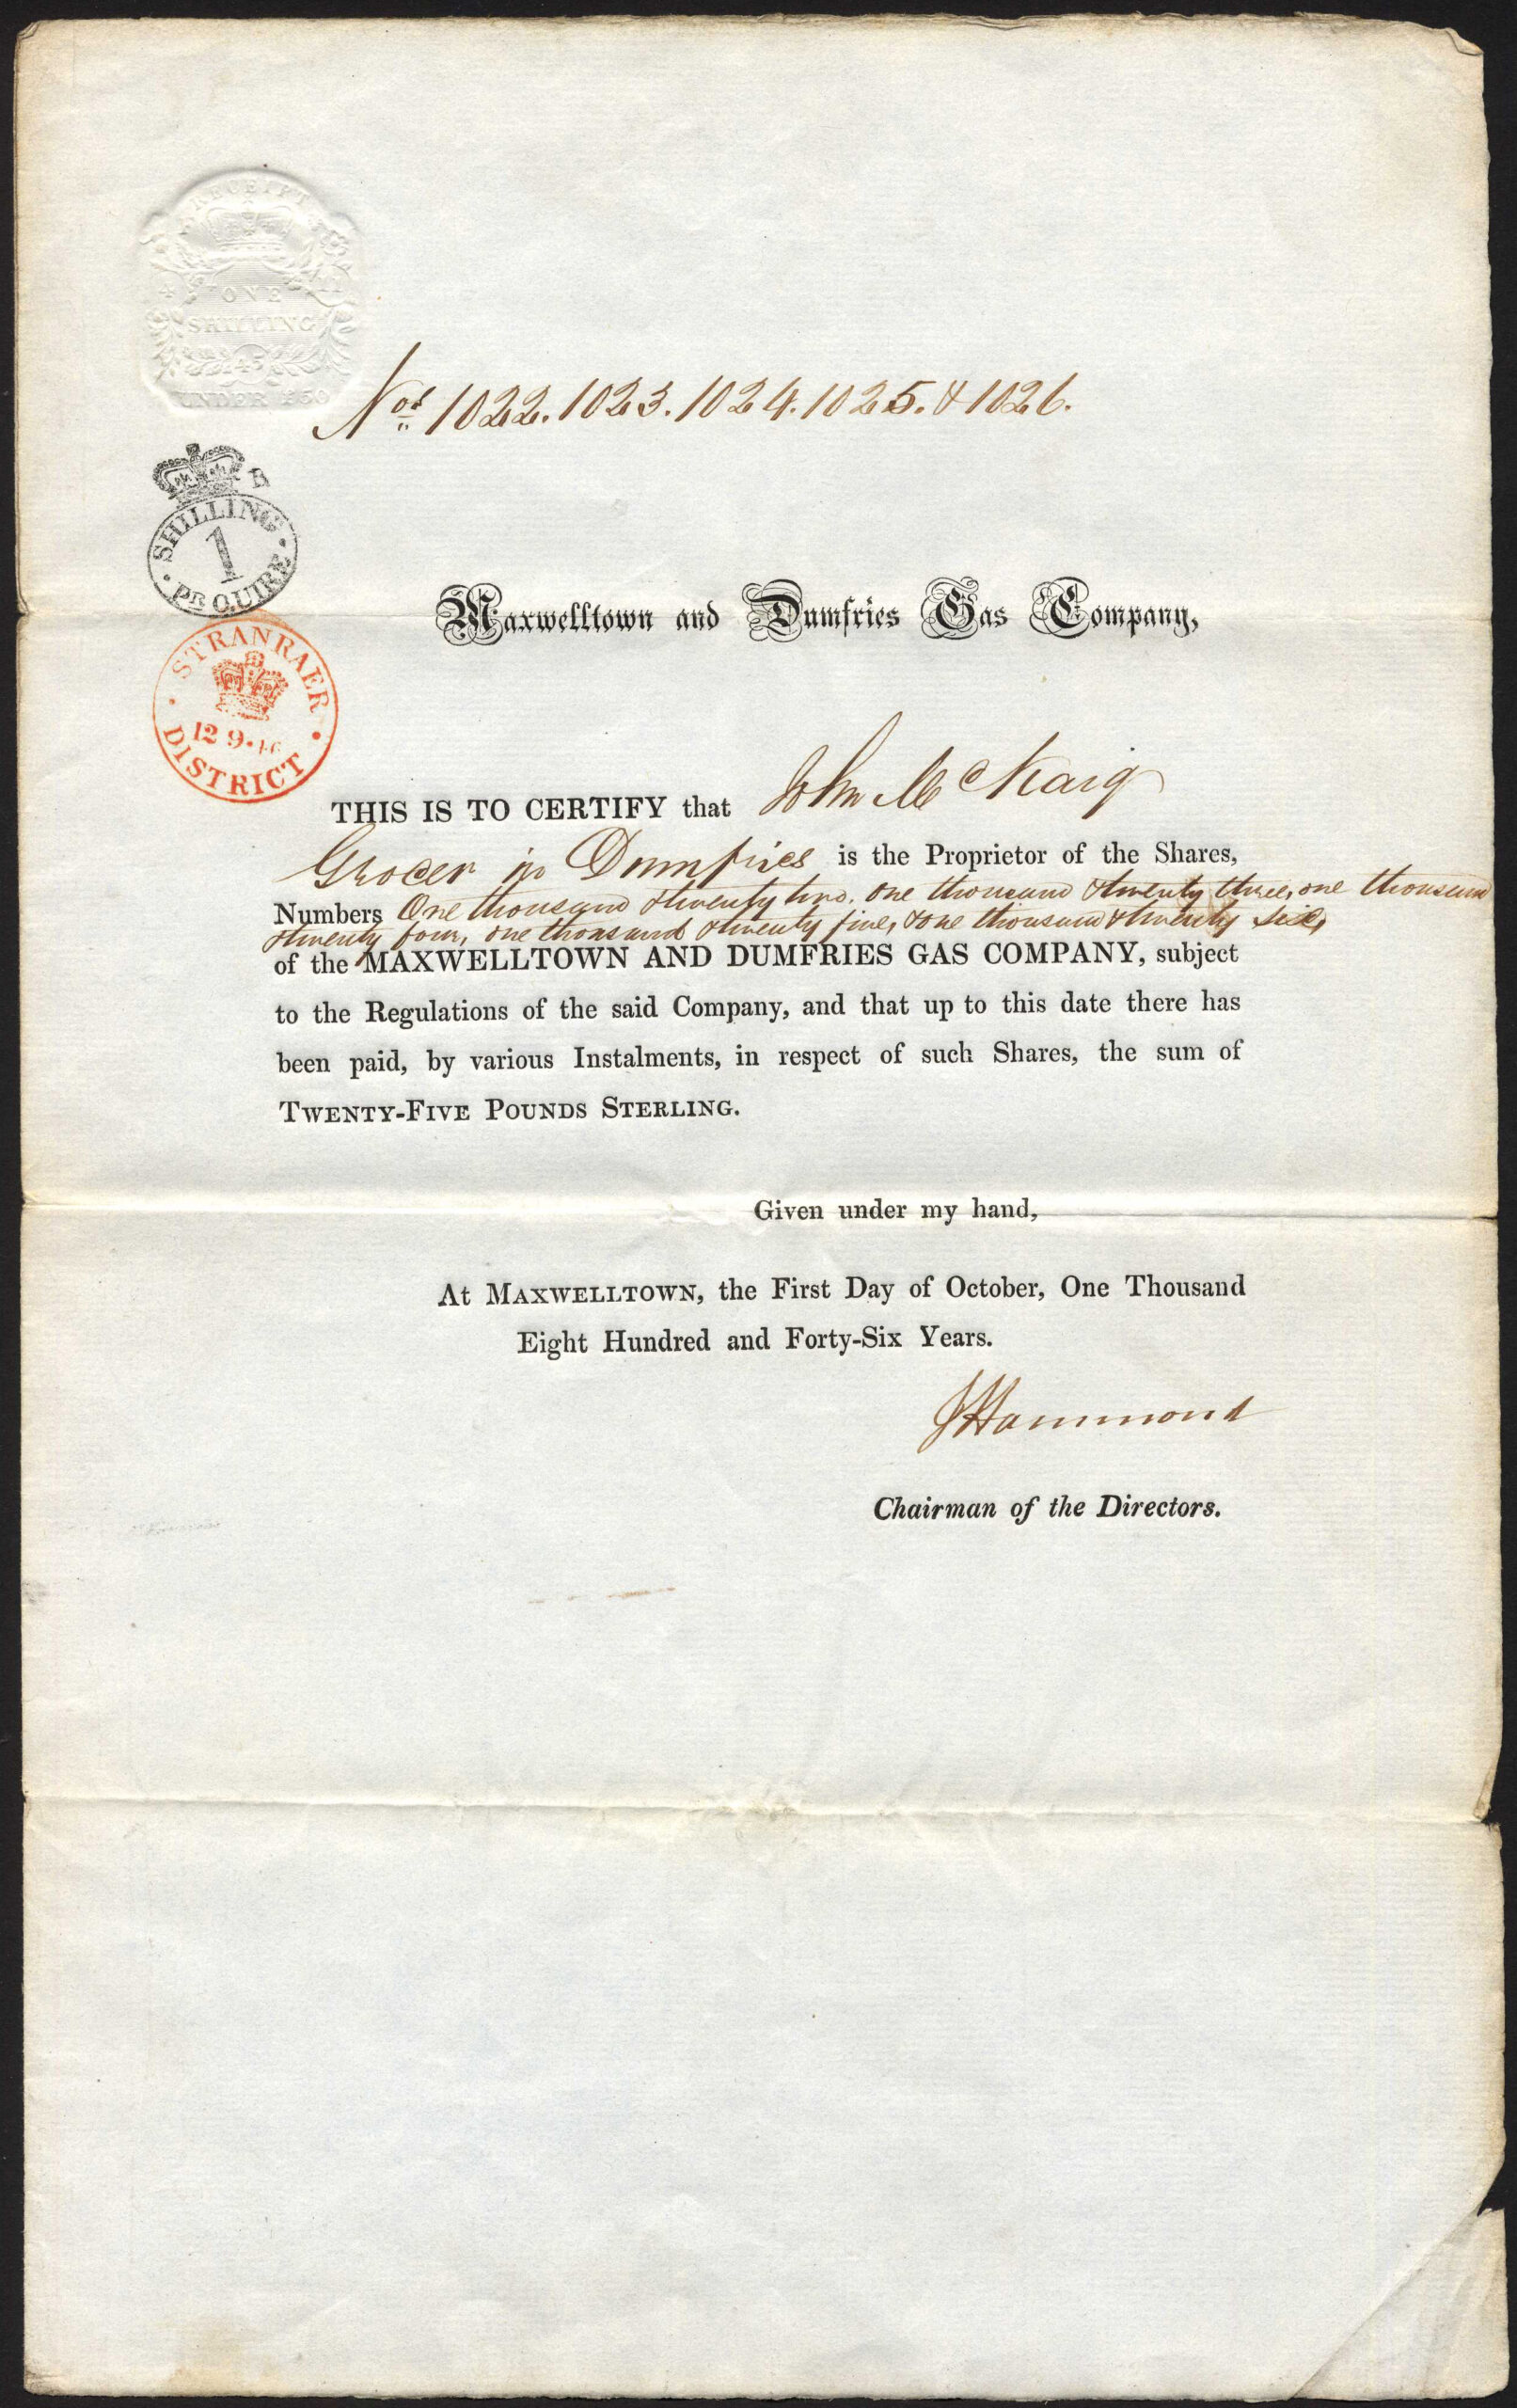 RECEIPT
ONE
SHILLING
45
UNDER £50
Nos 1022. 1023. 1024. 1025. & 1026.
B
SHILLING
1
PR QUIRE
Maxwelltown and Dumfries Gas Company,
STRANRAER
12 9·46
DISTRICT
THIS IS TO CERTIFY that John McKaig
Grocer in Dumfries is the Proprietor of the Shares,
Numbers One thousand & twenty two, one thousand & twenty three, one thousand
& twenty four, one thousand & twenty five, & one thousand & twenty six,
of the MAXWELLTOWN AND DUMFRIES GAS COMPANY, subject
to the Regulations of the said Company, and that up to this date there has
been paid, by various Instalments, in respect of such Shares, the sum of
TWENTY-FIVE POUNDS STERLING.
Given under my hand,
At MAXWELLTOWN, the First Day of October, One Thousand
Eight Hundred and Forty-Six Years.
JHammond
Chairman of the Directors.